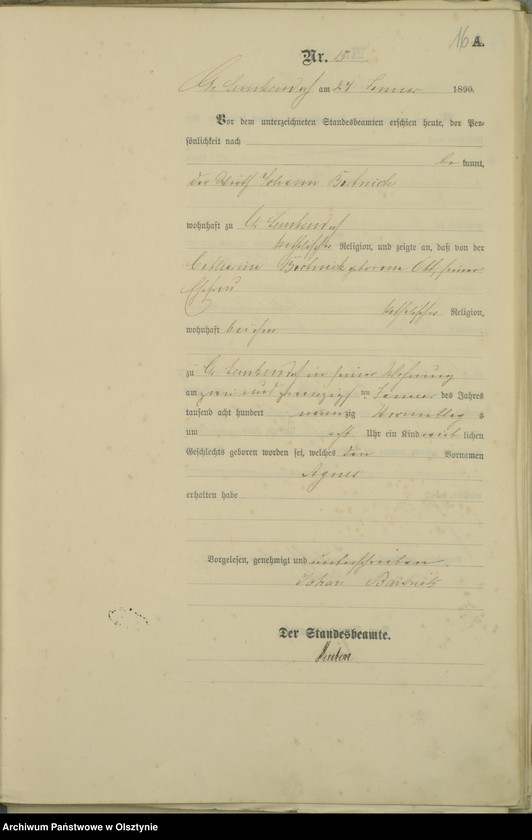 16 A.
Nr. 15
Gr. Lemkendorf am 24 Januar 1890.
Vor dem unterzeichneten Standesbeamten erschien heute, der Per-
sönlichkeit nach
be kannt,
der Wirth Johann
wohnhaft zu Gr. Lemkendorf
katholischer Religion, und zeigte an, daß von der
Catharina geborene Ott, seiner
Ehefrau
katholischer Religion,
wohnhaft bei ihm
zu Gr. Lemkendorf in seiner Wohnung
am zwei und zwanzigsten Januar des Jahres
tausend acht hundert neunzig Vormittags
um acht Uhr ein Kind weiblichen
Geschlechts geboren worden sei, welches den Vornamen
Agnes
erhalten habe
Vorgelesen, genehmigt und unterschrieben.
Johan
Der Standesbeamte.
Archiwum Państwowe w Olsztynie